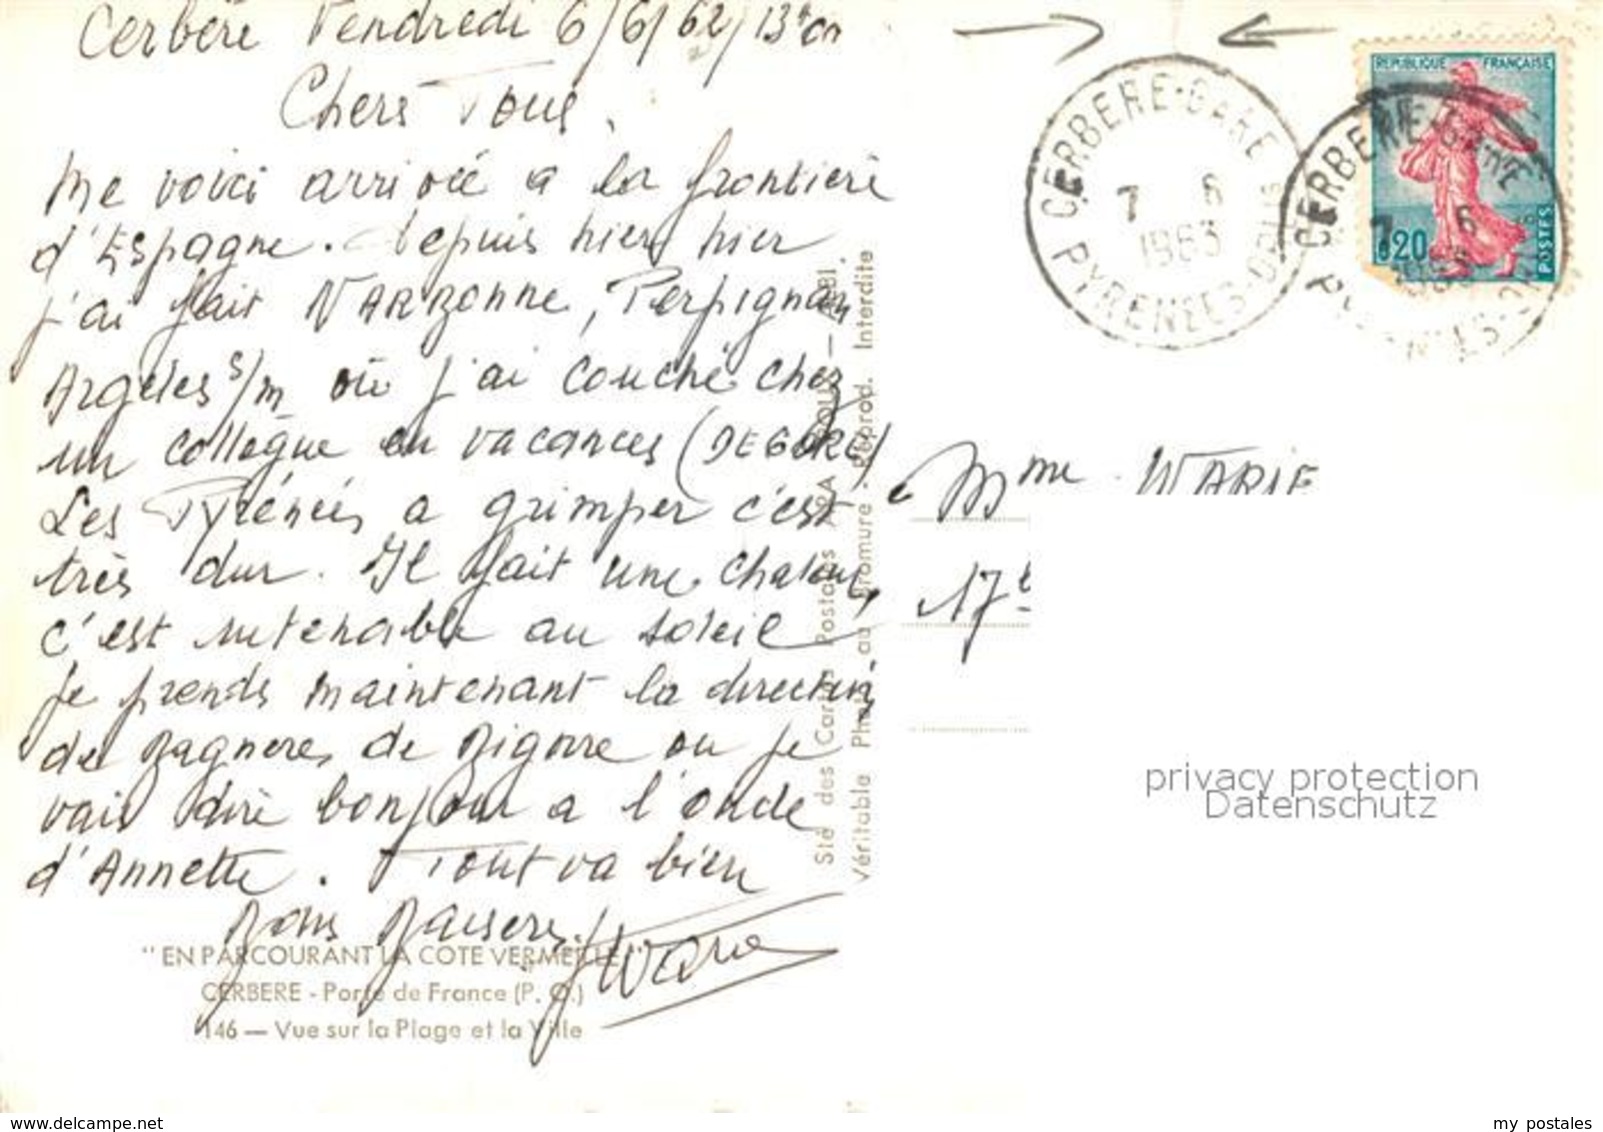 Cerbère Vendredi 6/6/62/13h
Chers Tous,
me voici arrivée a la frontière
d'Espagne. depuis hier hier
j'ai fait NARBONNE, Perpignan
Argelès s/m où j'ai couché chez
un collègue en vacances (DEGORE)
Les Pyrénées a grimper c'est
très dur. Il fait une chaleur,
c'est intenable au soleil
Je prends maintenant la direction
de Bagneres de Bigorre ou je
vais dire bonjour a l'oncle
d'Annette. Tout va bien
Bons Baisers
"EN PARCOURANT LA COTE VERMEILLE"
CERBERE - Porte de France (P. O.)
146 — Vue sur la Plage et la Ville
Sté des Cartes Postales
Véritable Photo au Bromure - Reprod. Interdite
CERBERE-GARE
7 6
1963
PYRENEES-ORIES
REPUBLIQUE FRANÇAISE
0,20
POSTES
CERBERE-GARE
7 6
Mme WARIE
17
privacy protection
Datenschutz
www.delcampe.net
my_postales